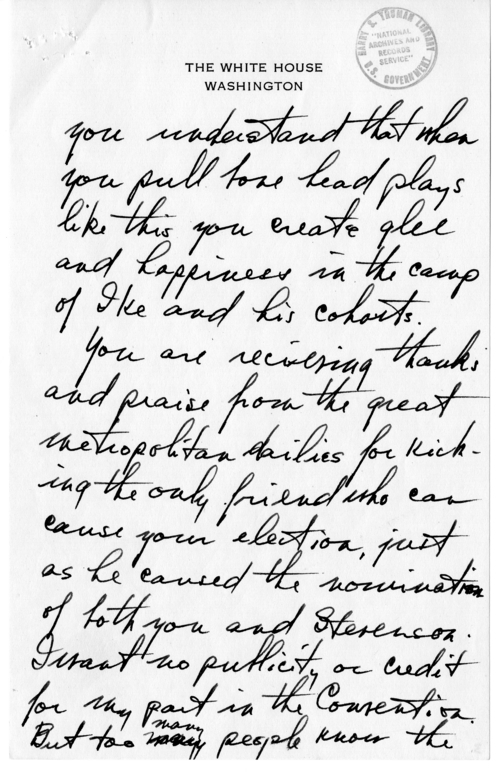 HARRY S. TRUMAN LIBRARY
"NATIONAL
ARCHIVES AND
RECORDS
SERVICE"
U.S. GOVERNMENT
THE WHITE HOUSE
WASHINGTON
you understand that when
you pull bone head plays
like this you create glee
and happiness in the camp
of Ike and his cohorts.
You are recieving thanks
and praise from the great
metropolitan dailies for kick-
ing the only friend who can
cause your election, just
as he caused the nomination
of both you and Stevenson.
I want no publicity or credit
for my part in the Convention.
But too many people know the